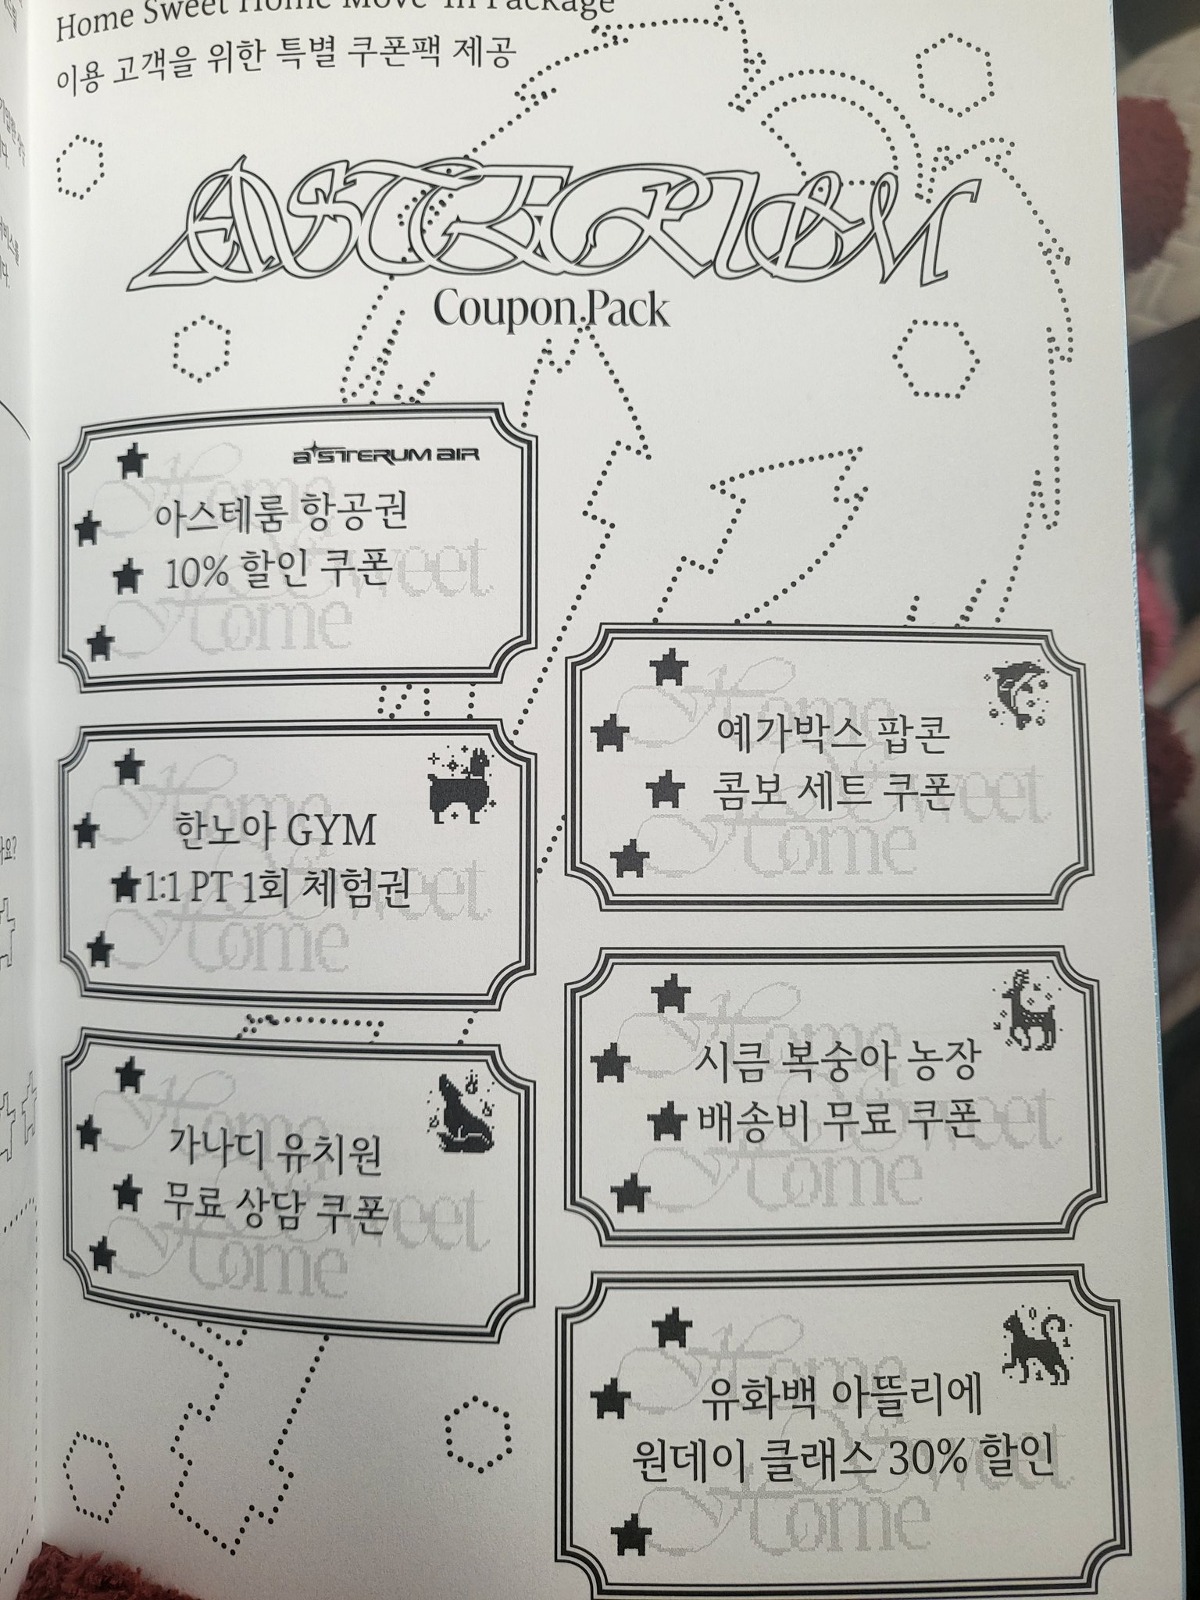 Home Sweet Home Move-in Package
이용 고객을 위한 특별 쿠폰팩 제공
ASTERUM
Coupon Pack
aSTERUM aIR
아스테룸 항공권
10% 할인 쿠폰
Home
Sweet
Home
한노아 GYM
1:1 PT 1회 체험권
Home
Sweet
Home
가나디 유치원
무료 상담 쿠폰
Home
Sweet
Home
예가박스 팝콘
콤보 세트 쿠폰
Home
Sweet
Home
시큼 복숭아 농장
배송비 무료 쿠폰
Home
Sweet
Home
유화백 아뜰리에
원데이 클래스 30% 할인
Home
Sweet
Home